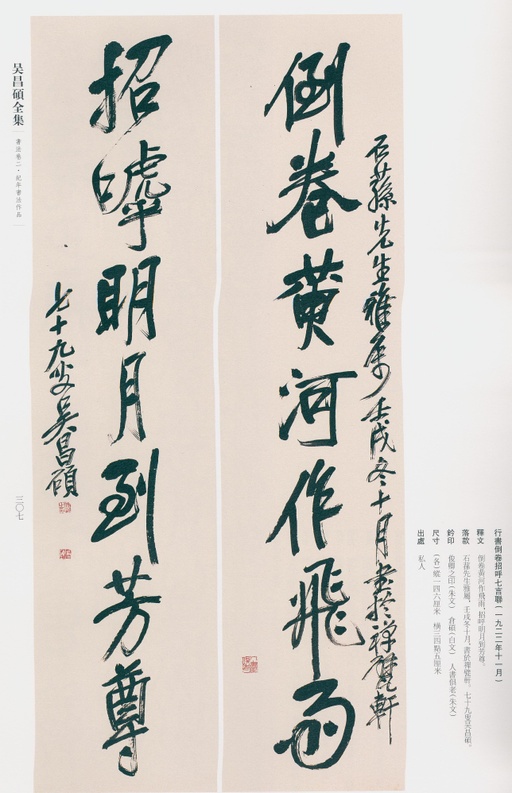 倒卷黄河作飛雨
石蓀先生雅屬少壬戌冬十月書於禪甓軒
招嘑明月到芳尊
七十九叟吴昌碩
吴昌碩全集
書法卷二·紀年書法作品
三〇七
行書倒卷招呼七言聯(一九二二年十一月)
釋文 倒卷黄河作飛雨,招呼明月到芳尊。
落款 石蓀先生雅屬,壬戌冬十月,書於禪甓軒,七十九叟吴昌碩。
鈐印 俊卿之印(朱文) 倉碩(白文) 人書俱老(朱文)
尺寸 (各)縱一四六厘米 横三四點五厘米
出處 私人